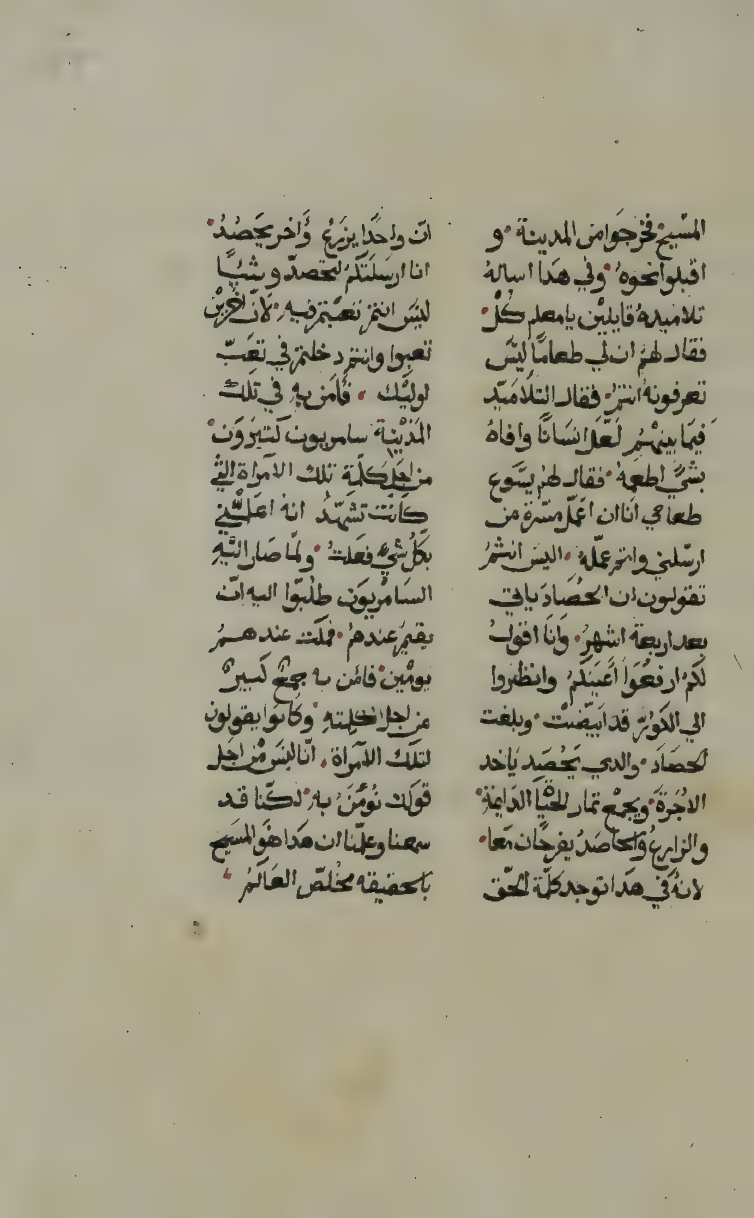 المسيح فخرجوا من المدينة و
اقبلوا نحوه وفي هدا اساله
تلاميده قايلين يا معلم كل
فقال لهم ان لي طعامًا ليس
تعرفونه انتم فقال التلاميد
فيما بينهم لعل انسانًا وافاه
بشيً اطعمه فقال لهم يسوع
طعامي انا ان اعمل مسرة من
ارسلني واتم عمله اليس انتم
تقولون ان الحصاد ياتي
بعد اربعة اشهر وانا اقول
لكم ارفعوا اعينكم وانظروا
الي الكور قد ابيضت وبلغت
الحصاد والدي يحصد ياخد
الاجرة ويجمع تمار للحياة الدايمة
والزارع والحاصد يفرحان معا
لانه في هدا توجد كلمة الحق
ان واحدًا يزرع واخر يحصد
انا ارسلتكم لتحصدو شيًا
ليس انتم تعبتم فيه لان اخرين
تعبوا وانتم دخلتم في تعب
اوليك فامن به في تلك
المدينة سامريون كتيرون
من اجل كلمة تلك الامراة التي
كانت تشهد انه اعلمني
بكل شي فعلت ولما صار اليه
السامريون طلبوا اليه ان
يقيم عندهم فمكت عندهم
يومين فامن به جمع كبير
من اجل كلمته وكانوا يقولون
لتلك الامراة انا ليس من اجل
قولك نومن به لكنا قد
سمعنا وعلمنا ان هدا هو المسيح
بالحقيقه مخلص العالم